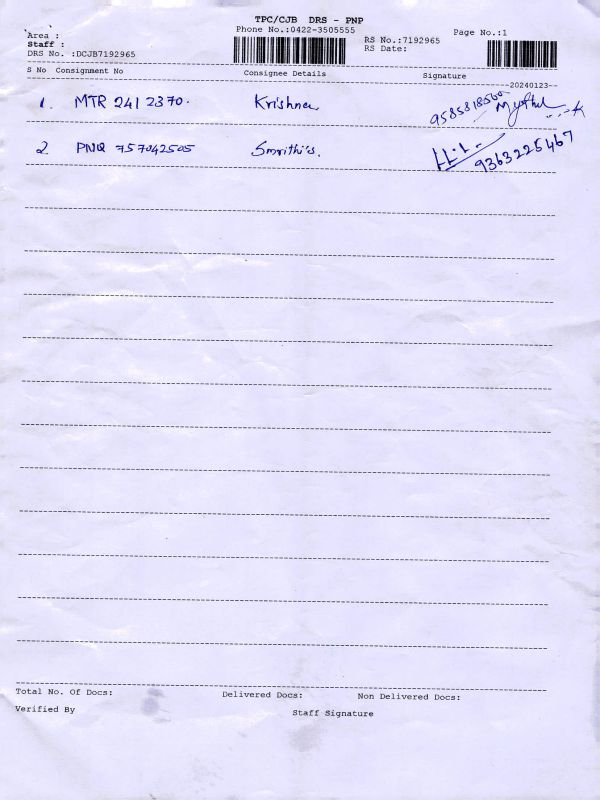 TPC/CJB DRS - PNP
Area : Phone No.:0422-3505555 Page No.:1
Staff : RS No.:7192965
DRS No. :DCJB7192965 RS Date:
S No Consignment No Consignee Details Signature
--20240123--
1. MTR 241 2370. Krishna 9585818560
2. PNQ 757042505 Smrithi's. 9363225467
Total No. Of Docs: Delivered Docs: Non Delivered Docs:
Verified By Staff Signature